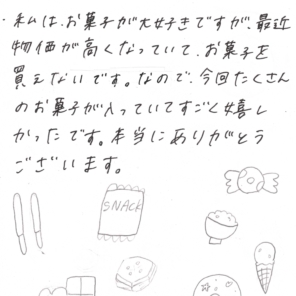 ・私は、お菓子が大好きですが、最近
物価が高くなっていて、お菓子を
買えないです。なので、今回たくさん
のお菓子が入っていてすごく嬉し
かったです。本当にありがとう
ございます。
SNACK